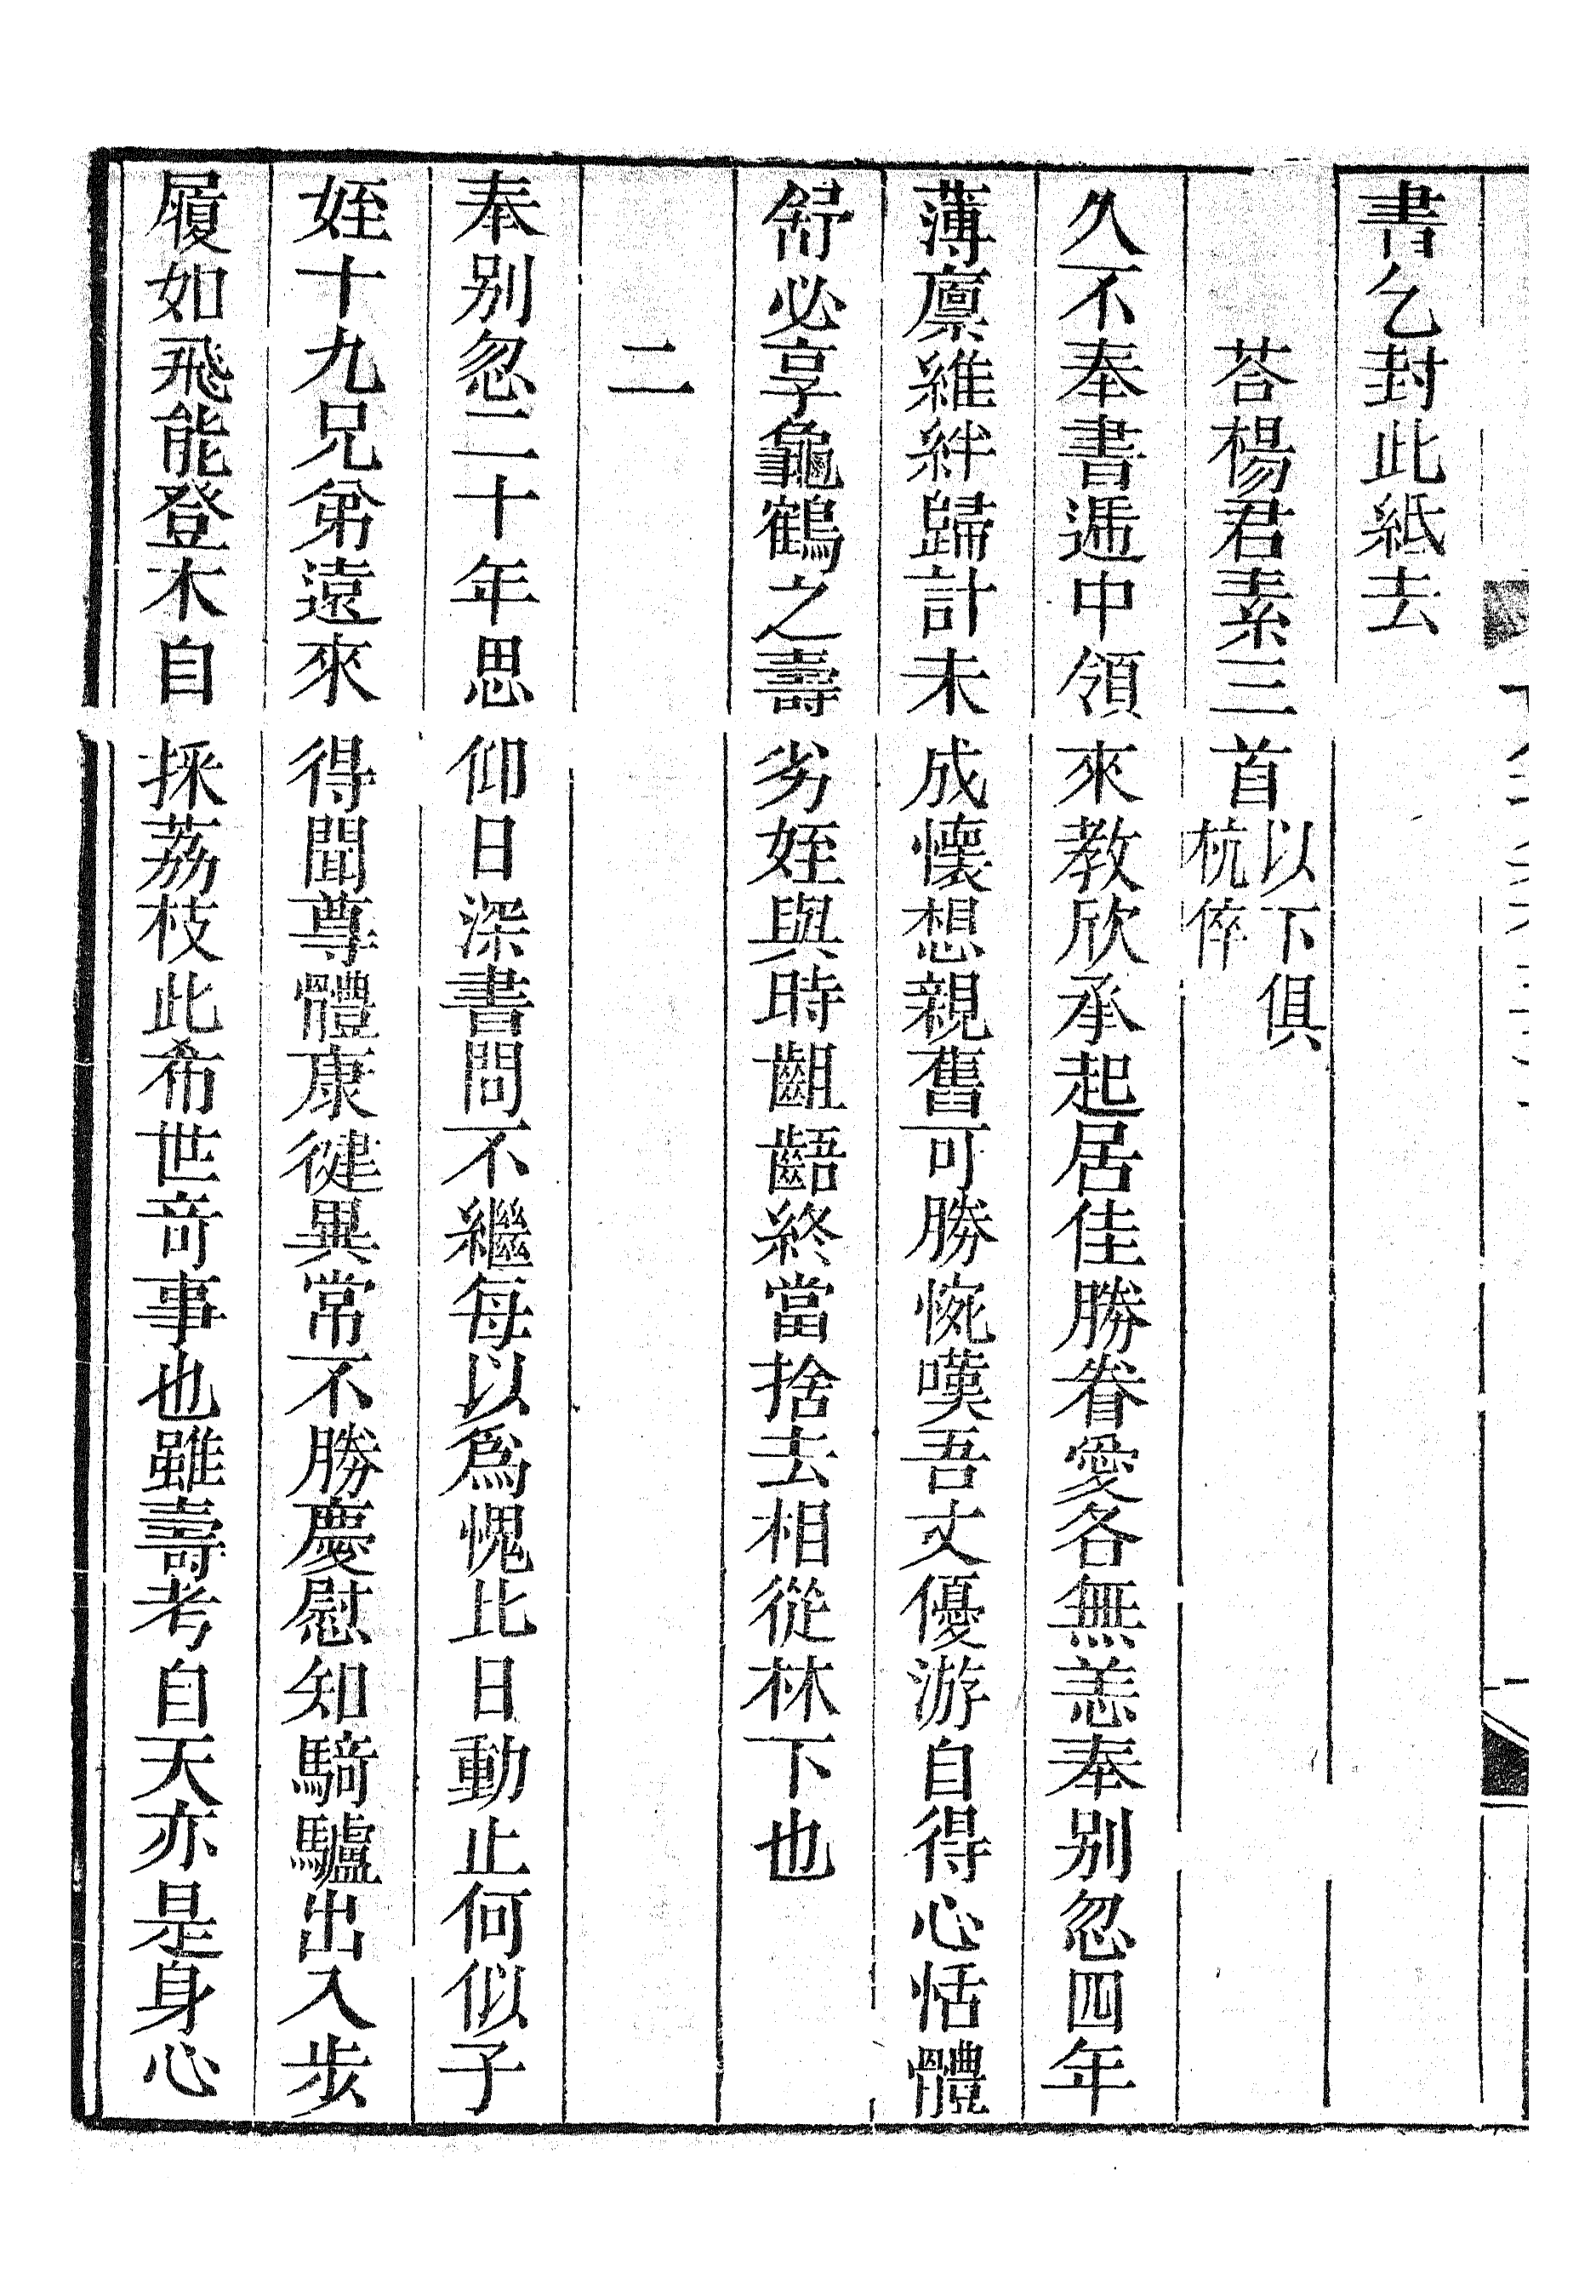 書乞封此紙去
荅楊君素三首以下俱杭倅
久不奉書遞中領來教欣承起居佳勝眷愛各無恙奉別忽四年
薄廪維絆歸計未成懷想親舊可勝惋嘆吾丈優游自得心恬體
舒必享龜鶴之壽劣姪與時齟齬終當捨去相從林下也
二
奉別忽二十年思仰日深書問不繼每以爲愧比日動止何似子
姪十九兄弟遠來得聞尊體康徤異常不勝慶慰知騎驢出入步
履如飛能登木自採荔枝此希世竒事也雖壽考自天亦是身心